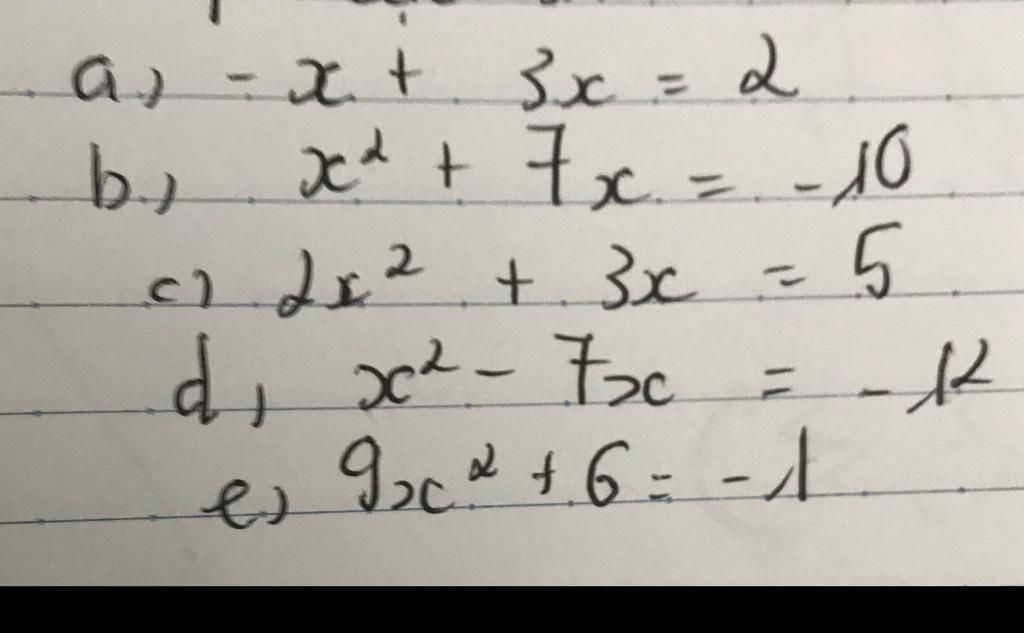 a) - x + 3x = 2
b.) x² + 7x = -10
c) 2x² + 3x = 5
d) x² - 7x = -12
e) 9x² + 6 = -1